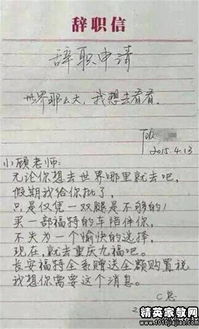 辞职信
辞职申请
世界那么大，我想去看看。
2015.4.13
小顾老师：
无论你想去世界哪里就去吧，
假期我给你批了，
只是仅凭一双腿是不够的，
买一部福特的车陪伴你，
不失为一个愉快的选择，
现在，就去重庆九福吧。
长安福特全系赠送全额购置税
我想你需要这个消息。
精英家教网